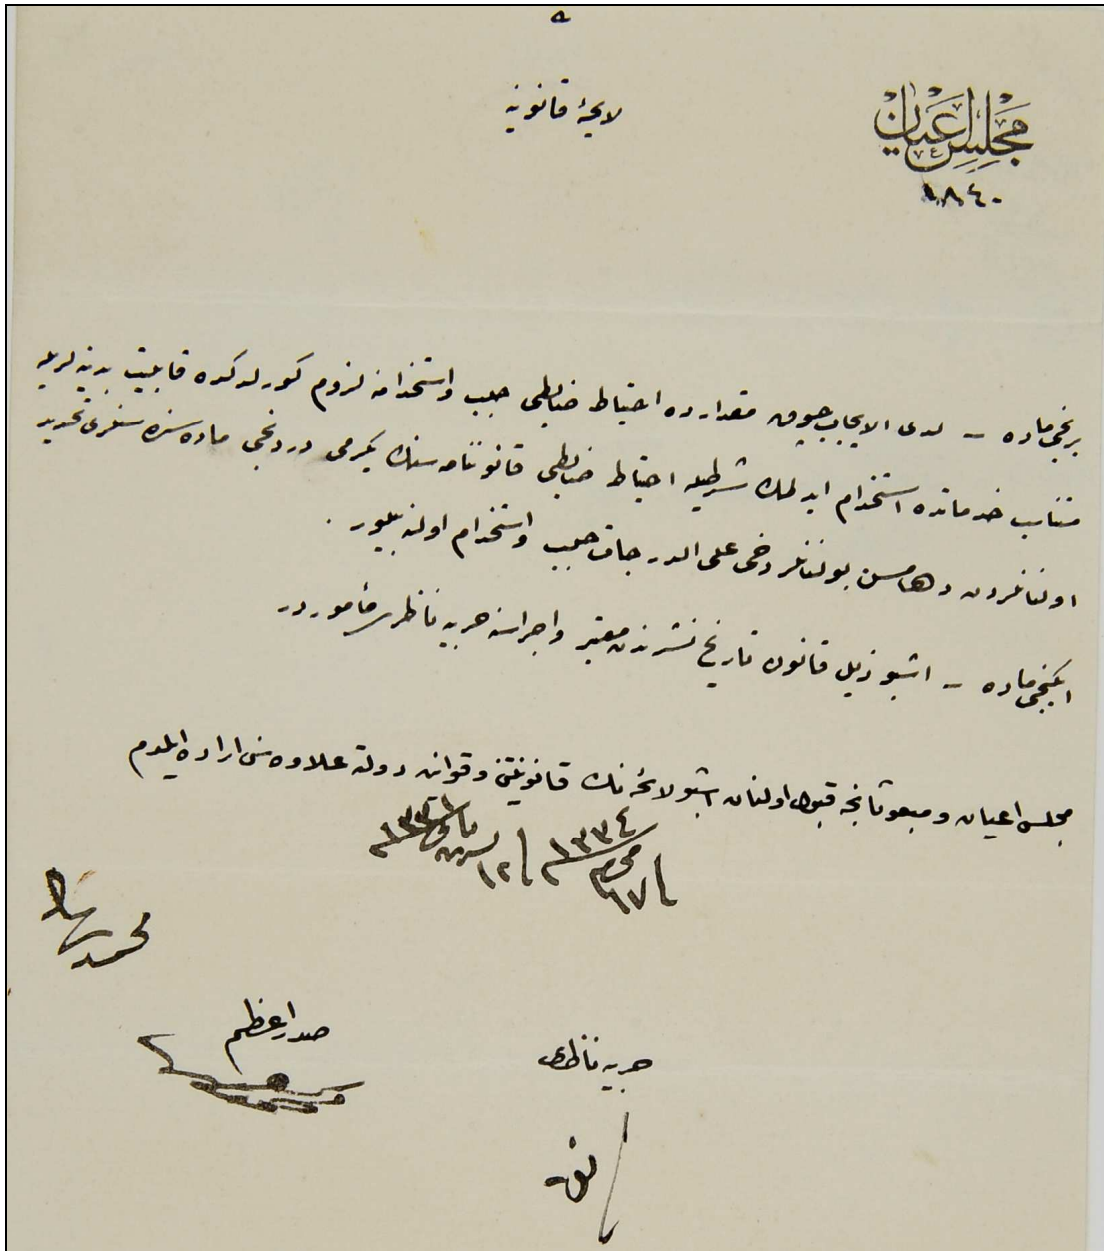 مجلس اعیان
١٨٤٠
لایحهٔ قانونیه
برنجی ماده - لدی الایجاب چوق مقدارده احتیاط ضابطی جلب و استخدامنه لزوم كورلدكده قابلیت بدنیه لریله
متناسب خدماتده استخدام ایدلمك شرطیله احتیاط ضابطی قانوننامه سنك یكرمی دردنجی ماده سنده سنلری تحدید
اولنانلردن دها مسن بولنانلر دخی علی الدرجات جلب و استخدام اولنه بیلور .
ایكنجی ماده - اشبو ذیل قانون تاریخ نشرندن معتبر و اجراسنه حربیه ناظری مأموردر
مجلس اعیان و مبعوثانجه قبول اولنان اشبو لایحه نك قانونیتنی و قوانین دولته علاوه سنی اراده ایلدم
محرم ١٣٣٤
تشرین ثانی ١٣٣١
محمد رشاد
صدر اعظم
حربیه ناظری
انور